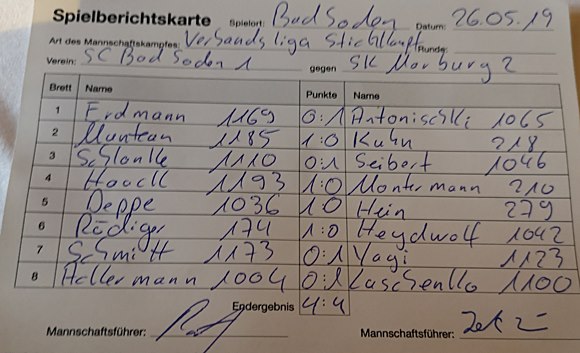 Spielberichtskarte Spielort: Bad Soden Datum: 26.05.19
Art des Mannschaftskampfes: Verbandsliga Stichkampf Runde:
Verein: SC Bad Soden 1 gegen SK Marburg 2
Brett Name Punkte Name
1 Erdmann 1169 0:1 Antonischki 1065
2 Muntean 1185 1:0 Kuhn 218
3 Schlonke 1110 0:1 Seibert 1046
4 Haack 1193 1:0 Montermann 210
5 Deppe 1036 1 0 Hein 279
6 Rödiger 174 1:0 Heydwolf 1042
7 Schmitt 1173 0:1 Yagi 1123
8 Hollermann 1004 0:1 Laschenko 1100
Endergebnis 4:4
Mannschaftsführer: Mannschaftsführer: